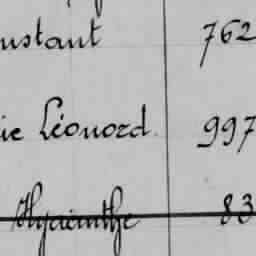 nstant 762
ie Léonord. 997
Hyacinthe 83